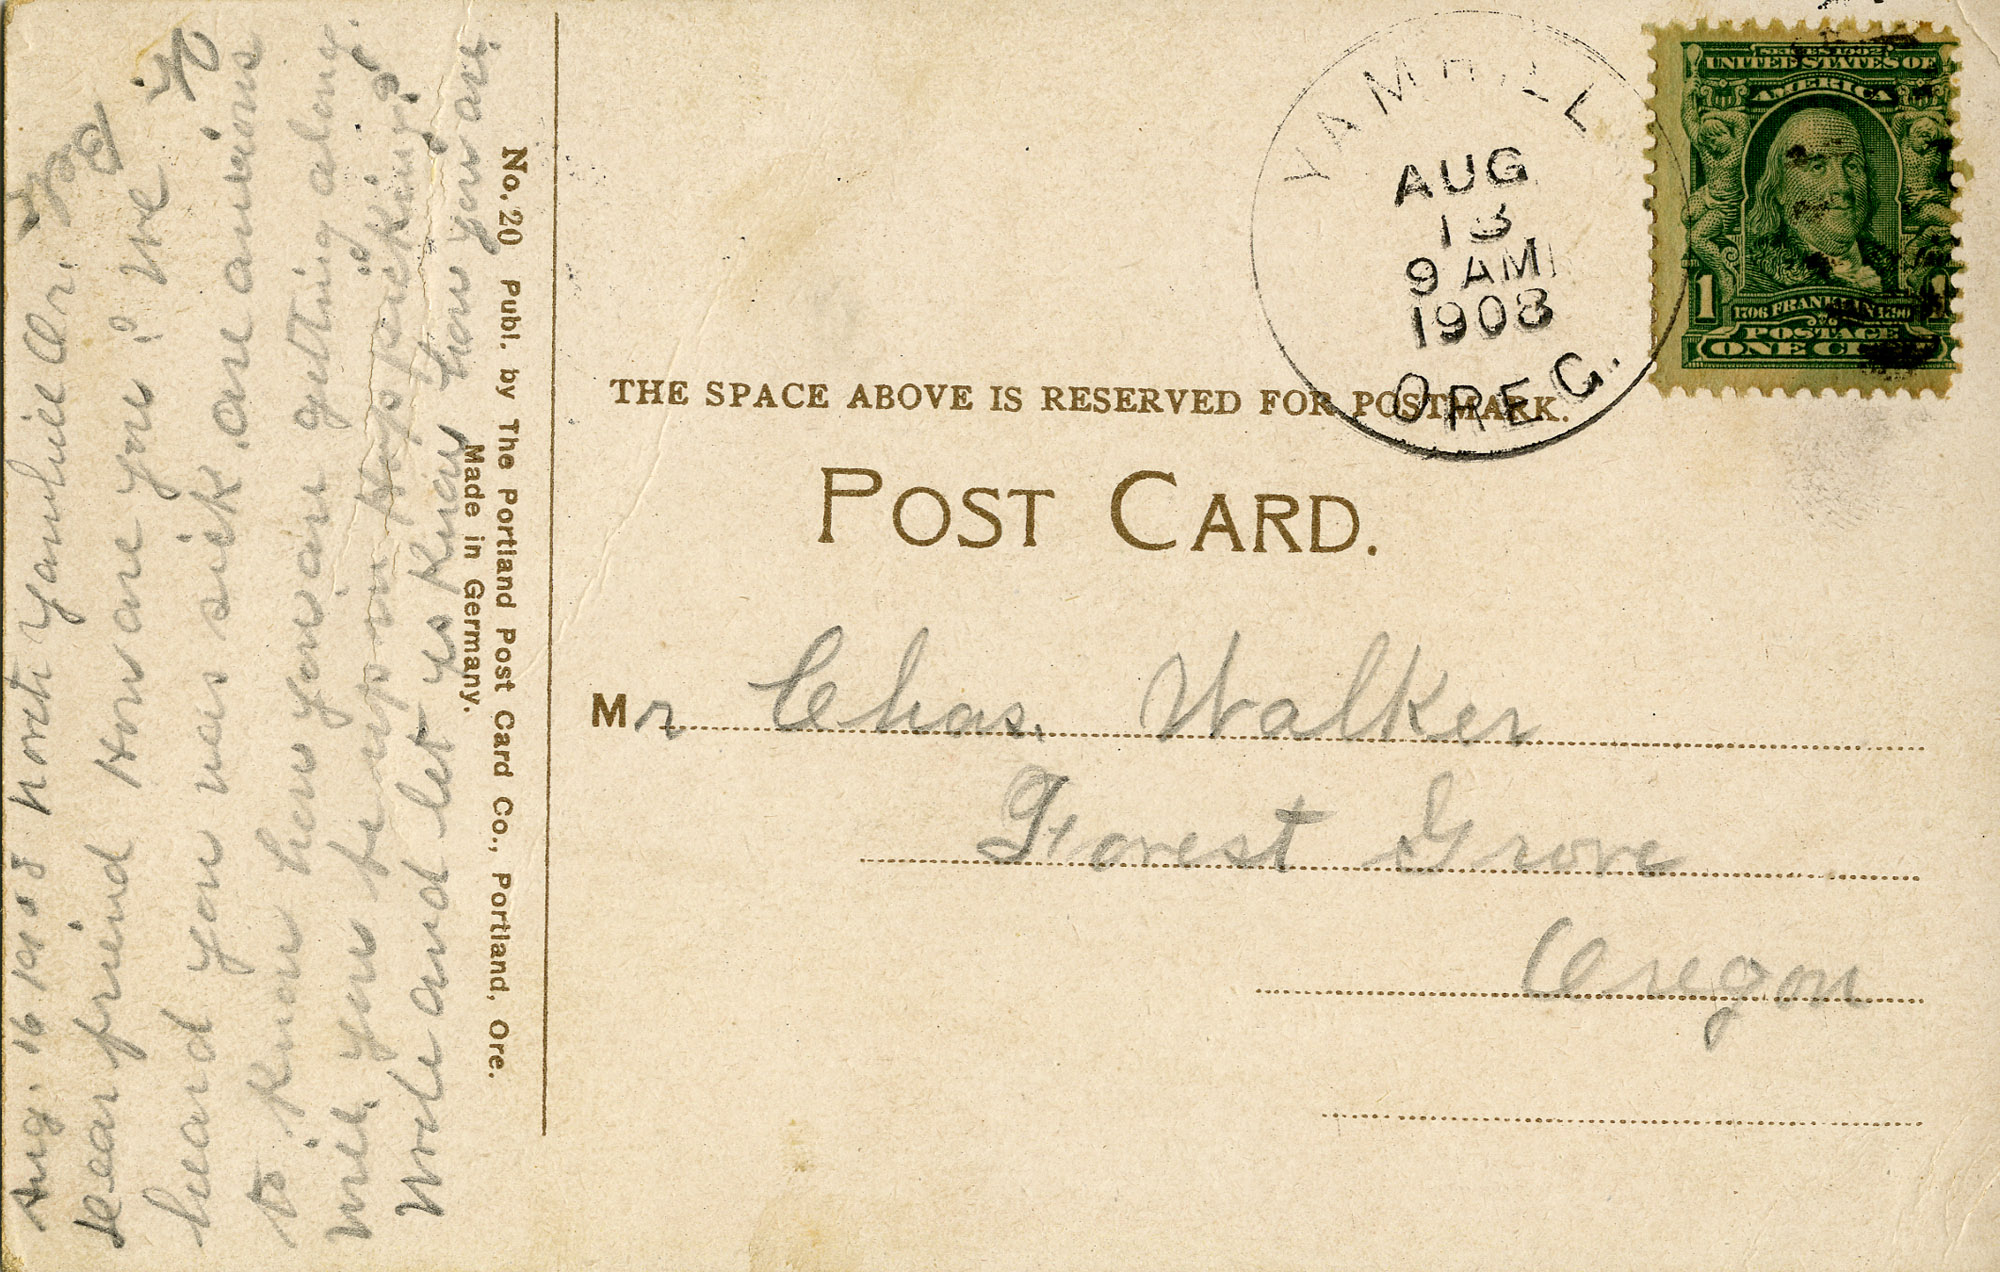 Aug. 16 1908 North Yamhill Or.
Dear friend How are you? We
heard you was sick. are anxious
to know how you are getting along.
will you be up in Hop picking?
Write and let us know how you are.
No. 20 Publ. by The Portland Post Card Co., Portland, Ore.
Made in Germany.
YAMHILL
AUG
13
9 AM
1908
OREG.
SERIES 1902
UNITED STATES OF
AMERICA
1
1706 FRANKLIN 1790
POSTAGE
ONE CENT
THE SPACE ABOVE IS RESERVED FOR POSTMARK.
POST CARD.
Mr Chas. Walker
Forest Grove
Oregon